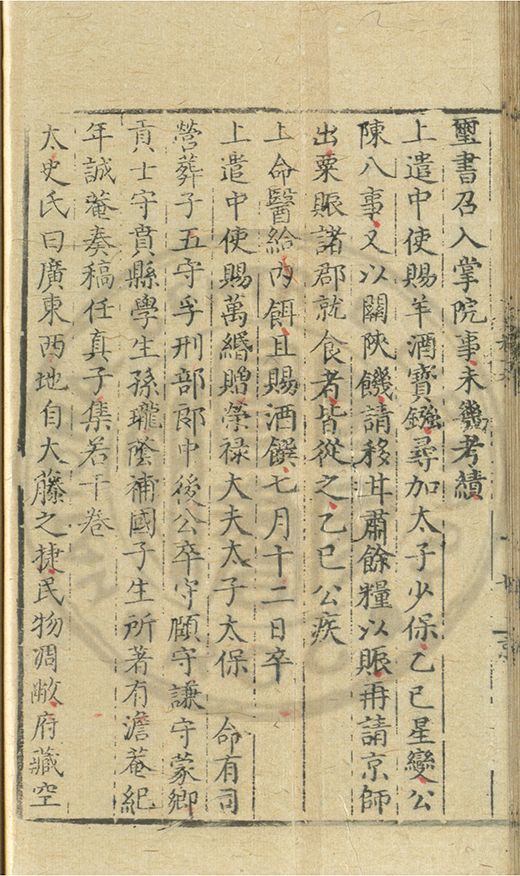 璽書召入掌院事未幾考績
上遣中使賜羊酒寶鏹尋加太子少保乙巳星變公
陳八事又以關陝饑請移甘肅餘糧以賑再請京師
出粟賑諸郡就食者皆從之乙巳公疾
上命醫給內餌且賜酒饌七月十二日卒
上遣中使賜萬緡贈榮祿大夫太子太保　命有司
營葬子五守孚刑部郎中後公卒守頤守謙守蒙鄉
貢士守賁縣學生孫瓏蔭補國子生所著有澹菴紀
年誠菴奏稿任真子集若干卷
太史氏曰廣東西地自大藤之捷民物凋敝府藏空